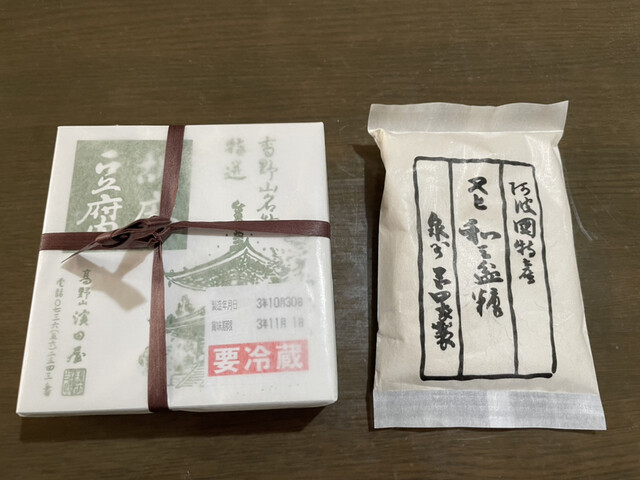 高野山名物
特選
豆腐
高野山 濱田屋
電話〇七三六・五六・二三四三番
製造年月日 3年10月30日
賞味期限 3年11月 1日
要冷蔵
阿波国特産
和三盆糖